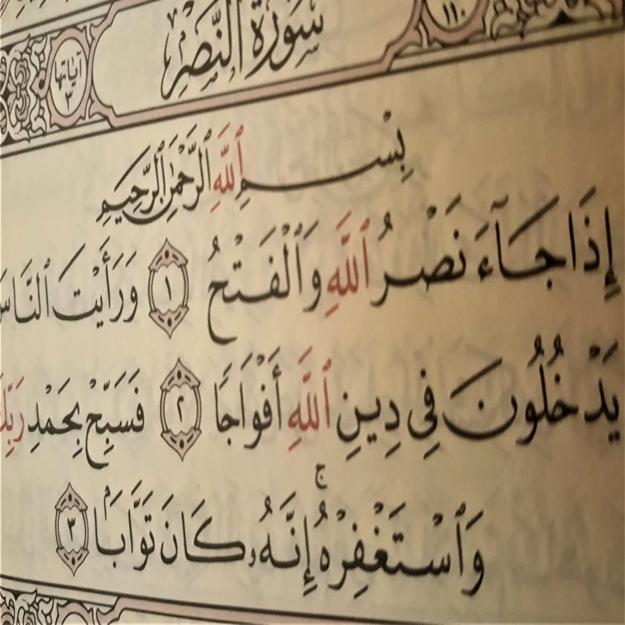 سُورَةُ النَّصْرِ ١١٠
آيَاتُهَا ٣
بِسْمِ ٱللَّهِ ٱلرَّحْمَٰنِ ٱلرَّحِيمِ
إِذَا جَآءَ نَصْرُ ٱللَّهِ وَٱلْفَتْحُ ١ وَرَأَيْتَ ٱلنَّاسَ
يَدْخُلُونَ فِي دِينِ ٱللَّهِ أَفْوَاجًا ٢ فَسَبِّحْ بِحَمْدِ رَبِّكَ
وَٱسْتَغْفِرْهُ ۚ إِنَّهُۥ كَانَ تَوَّابَۢا ٣